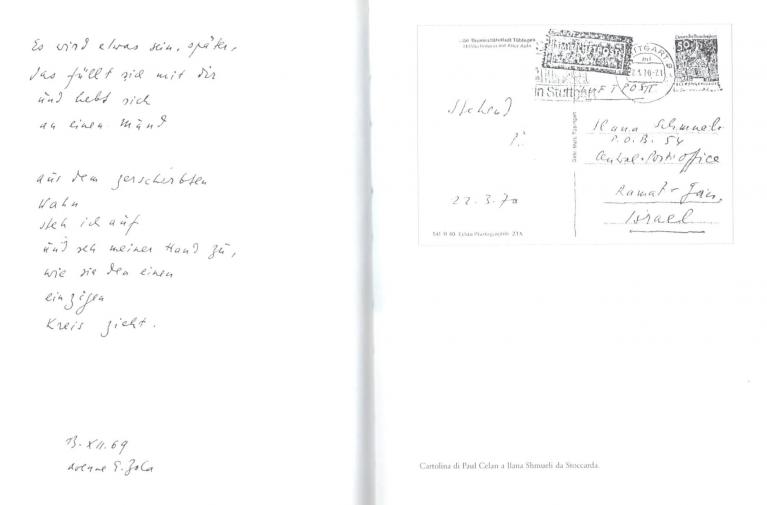 Es wird etwas sein, später,
das füllt sich mit dir
und hebt sich
an einen Mund
aus dem zerscherbten
Wahn
steh ich auf
und seh meiner Hand zu,
wie sie den einen
einzigen
Kreis zieht.
13. XII. 69
avenue E. Zola
Universitätsstadt Tübingen
mit Alter Aula
in Stuttgart
50
Stehend
P.
22.3.70
Ilana Schmueli
P.O.B. 54
Central-Post office
Ramat-Gan,
Israel
Cartolina di Paul Celan a Ilana Shmueli da Stoccarda.